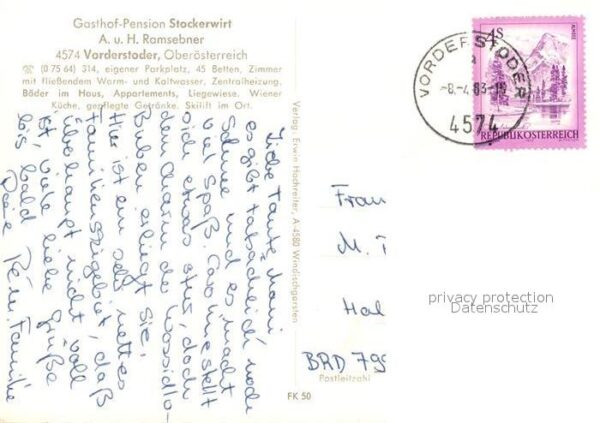 Gasthof-Pension Stockerwirt
A. u. H. Ramsebner
4574 Vorderstoder, Oberösterreich
☎ (0 75 64) 314, eigener Parkplatz, 45 Betten, Zimmer
mit fließendem Warm- und Kaltwasser, Zentralheizung,
Bäder im Haus, Appartements, Liegewiese. Wiener
Küche, gepflegte Getränke. Skilift im Ort.
Liebe Tante
es gibt tatsächlich noch
Schnee und es macht
viel Spaß. Caroline stellt
sich etwas an, doch
dem Charm der
Buben erliegt sie.
Hier ist ein sehr nettes
Familienskigebiet, daß
überhaupt nicht voll
ist. viele liebe Grüße
bis bald
Deine Familie
Verlag: Erwin Hochreiter, A-4580 Windischgarsten
FK 50
VORDERSTODER
a
-8.-4.83-15
4574
4S
REPUBLIK ÖSTERREICH
Frau
M.
Hal
BRD 799
Postleitzahl
privacy protection
Datenschutz